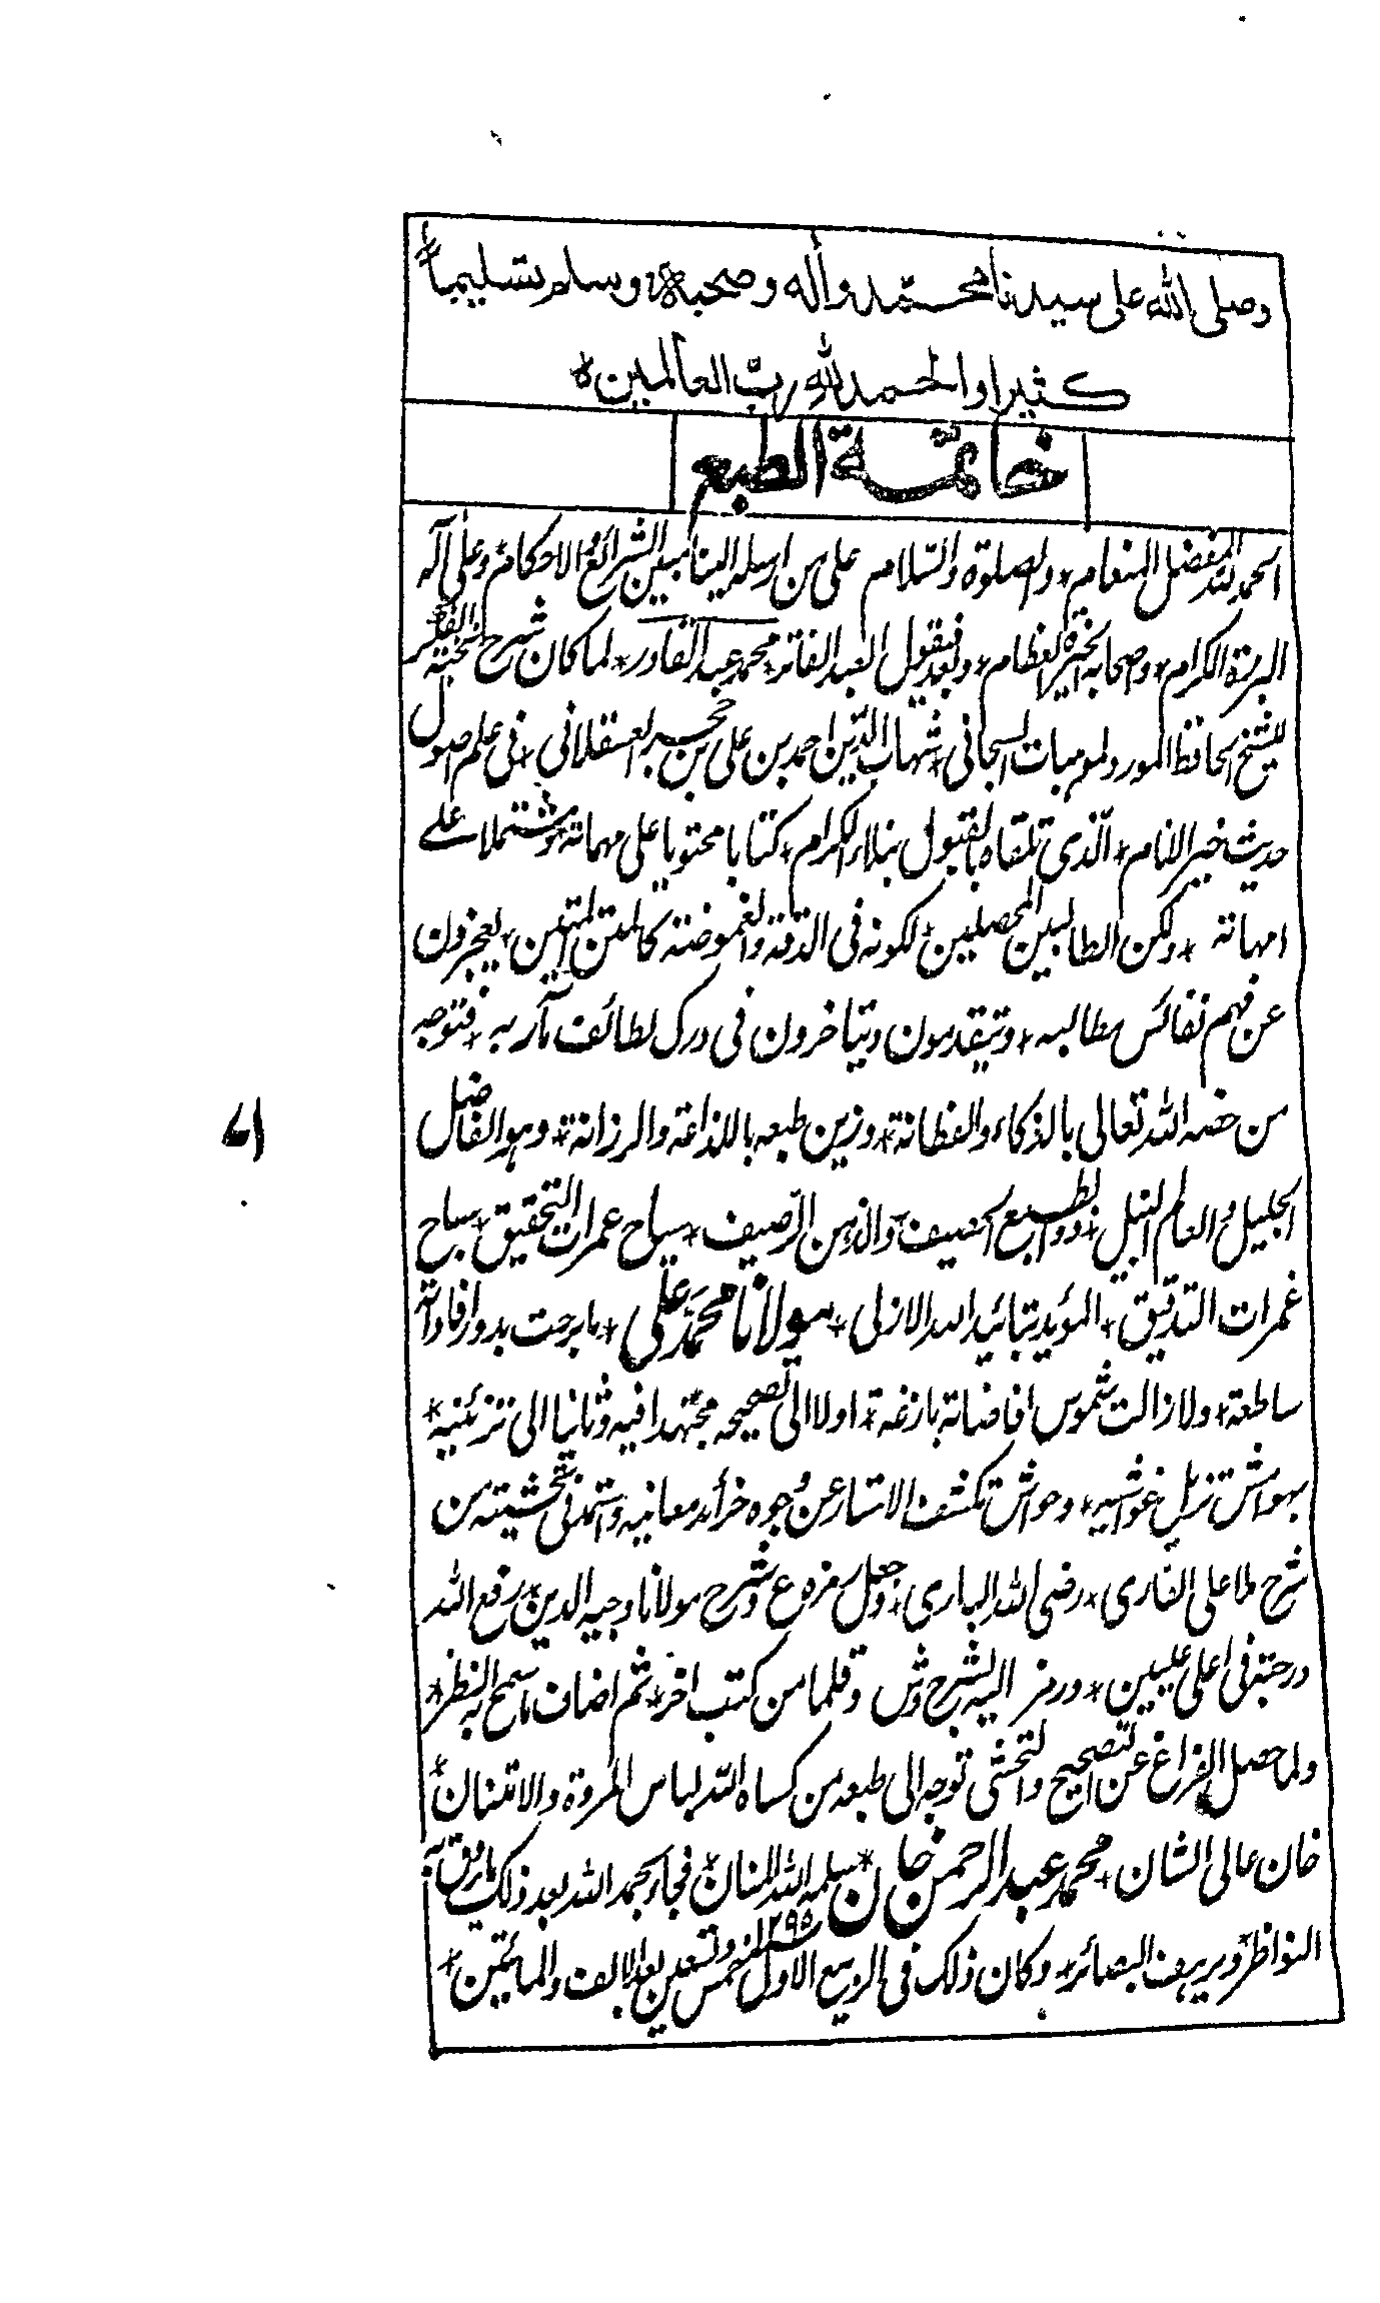 وصلى الله على سيدنا محمد وأله وصحبه وسلم تسليما*
كثيرا والحمد لله رب العالمين*
خاتمة الطبع
الحمد لله المفضل المنعام* والصلوة والسلام على من ارسله الينا لتبيين الشرائع والاحكام* وعلى آله
البررة الكرام* وصحابه الخيرة العظام* وبعد فيقول العبد الفاتر* محمد عبد القادر* لما كان شرح نخبة الفكر
للشيخ الحافظ المورد لموهبات السبحاني* شهاب الدين احمد بن على بن حجر العسقلاني* في علم اصول
حديث خير الانام* الذى تلقاه بالقبول نبلاء الكرام* كتابا محتويا على مهماته* ومشتملا على
امهاته* ولكن الطالبين المحصلين* لكونه فى الدقة والغموضة كالمتن المتين* يعجزون
عن فهم نفائس مطالبه* ويتقدمون ويتاخرون فى درك لطائف مآربه* فتوجه
من خصه الله تعالى بالذكاء والفطانة* وزين طبعه باللذاعة والرزانة* وهو الفاضل
الجليل والعالم النبيل* ذو الطبع الحصيف والذهن الرصيف* سياح عمرات التحقيق* سباح
غمرات التدقيق* المؤيد بتائيد الله الازلى* مولانا محمد على* ما برحت بدور افاداته
ساطعة* ولا زالت شموس افاضاته بازغة* اولا الى تصحيحه مجتهدا فيه وثانيا الى تزئينه*
بهوامش تزيل غواشيه* وحواش تكشف الاستار عن وجوه خرائد معانيه واستمد فى تحشيته من
شرح ملا على القارى* رضى الله البارى* وجعل رمزه ع وشرح مولانا وجيه الدين* رفع الله
درجته فى اعلى عليين* ورمز اليه بشرح وش وقلما من كتب اخر* ثم اضاف ما سمح به النظر*
ولما حصل الفراغ عن التصحيح والتحشى توجه الى طبعه من كساه الله لباس المروة والامتنان*
خان عالى الشان* محمد عبد الرحمن خان* سلمه الله المنان* فجاء بحمد الله بعد ذلك ما يروق به
النواظر ويرهف البصائر* وكان ذلك فى الربيع الاول ١٢٩٥ سنة خمس وتسعين بعد الالف والمائتين*
٧١